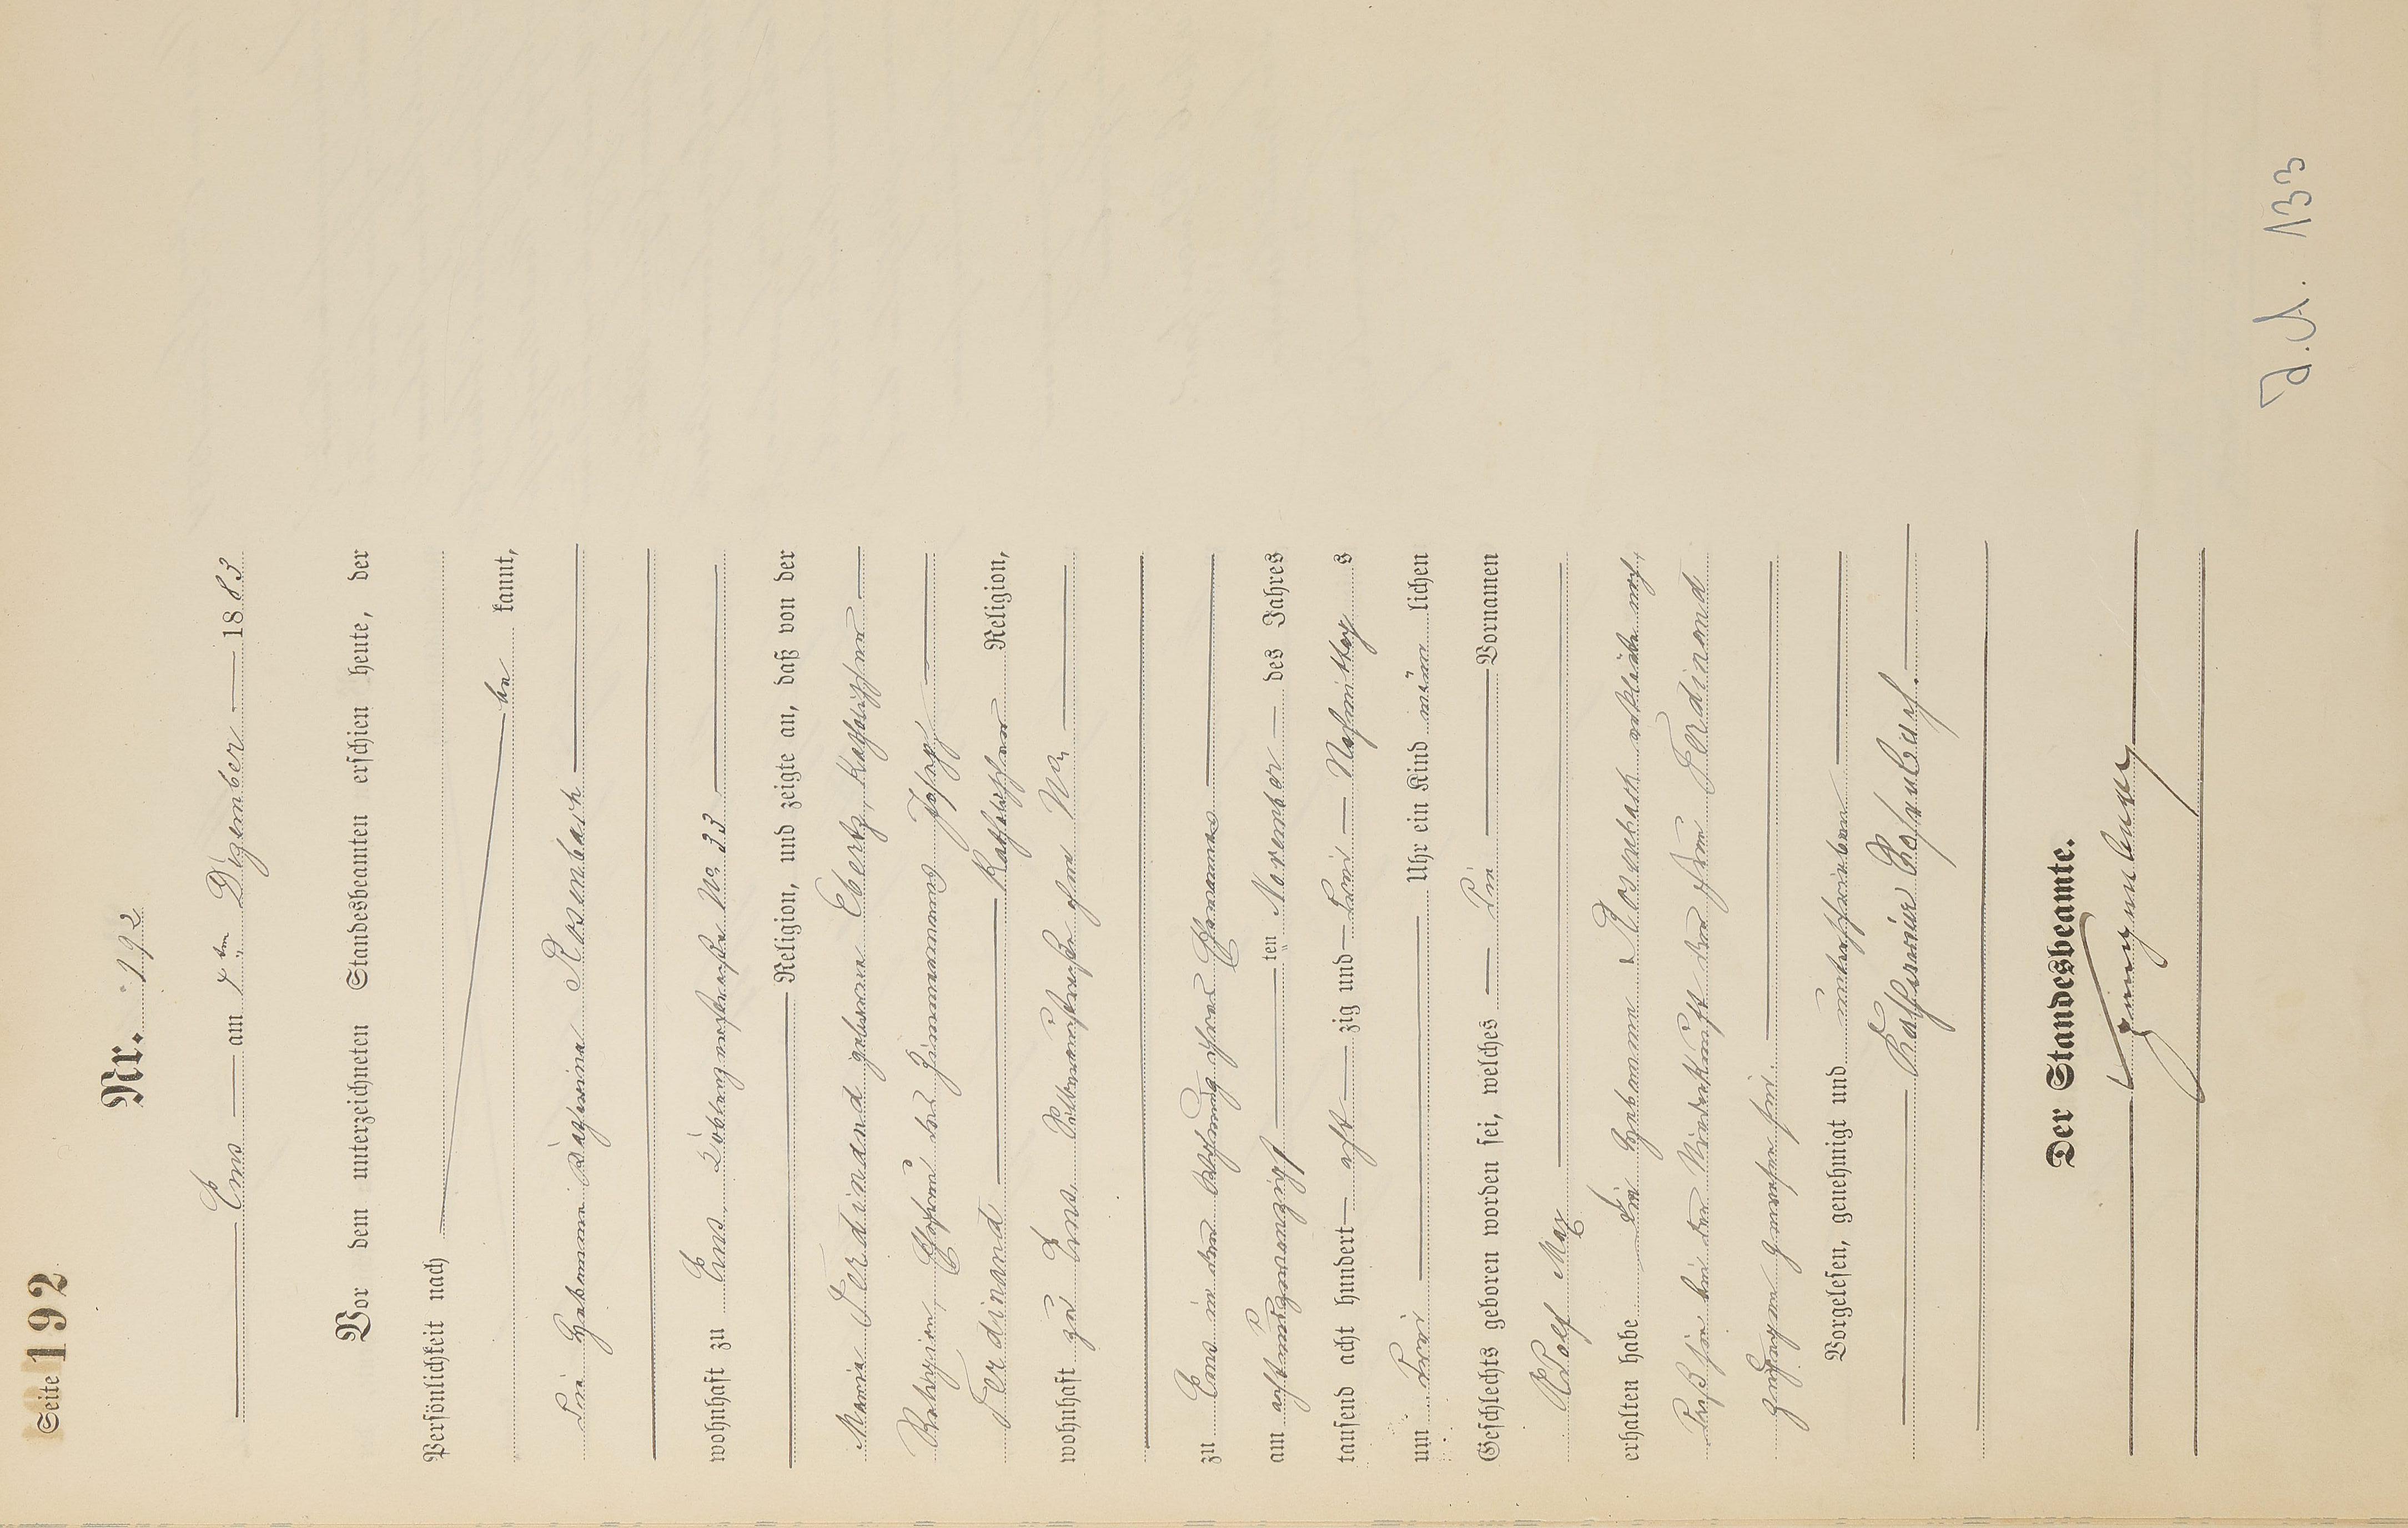 Seite 192
Nr. 192
Ems am 4ten Dezember 1883
Vor dem unterzeichneten Standesbeamten erschien heute, der
Persönlichkeit nach
be kannt,
die Hebamme Katharina Rosenbach
wohnhaft zu Ems, Coblenzerstraße No 33
Religion, und zeigte an, daß von der
Maria Ferdinand geborene Ebertz, katholischer
Religion, Ehefrau des Zimmermanns Joseph
Ferdinand katholischer Religion,
wohnhaft zu Ems, ohne No
zu Ems in der Wohnung ihres Ehemannes
am achtundzwanzigsten November des Jahres
tausend acht hundert acht zig und drei Nachmittag s
um drei Uhr ein Kind männ lichen
Geschlechts geboren worden sei, welches die Vornamen
Adolf Max
erhalten habe. Die Hebamme Rosenbach erklärte noch,
daß sie bei der Niederkunft der Frau Ferdinand
zugegen gewesen sei.
Vorgelesen, genehmigt und unterschrieben
Katharina Rosenbach.
Der Standesbeamte.
d. A. 133